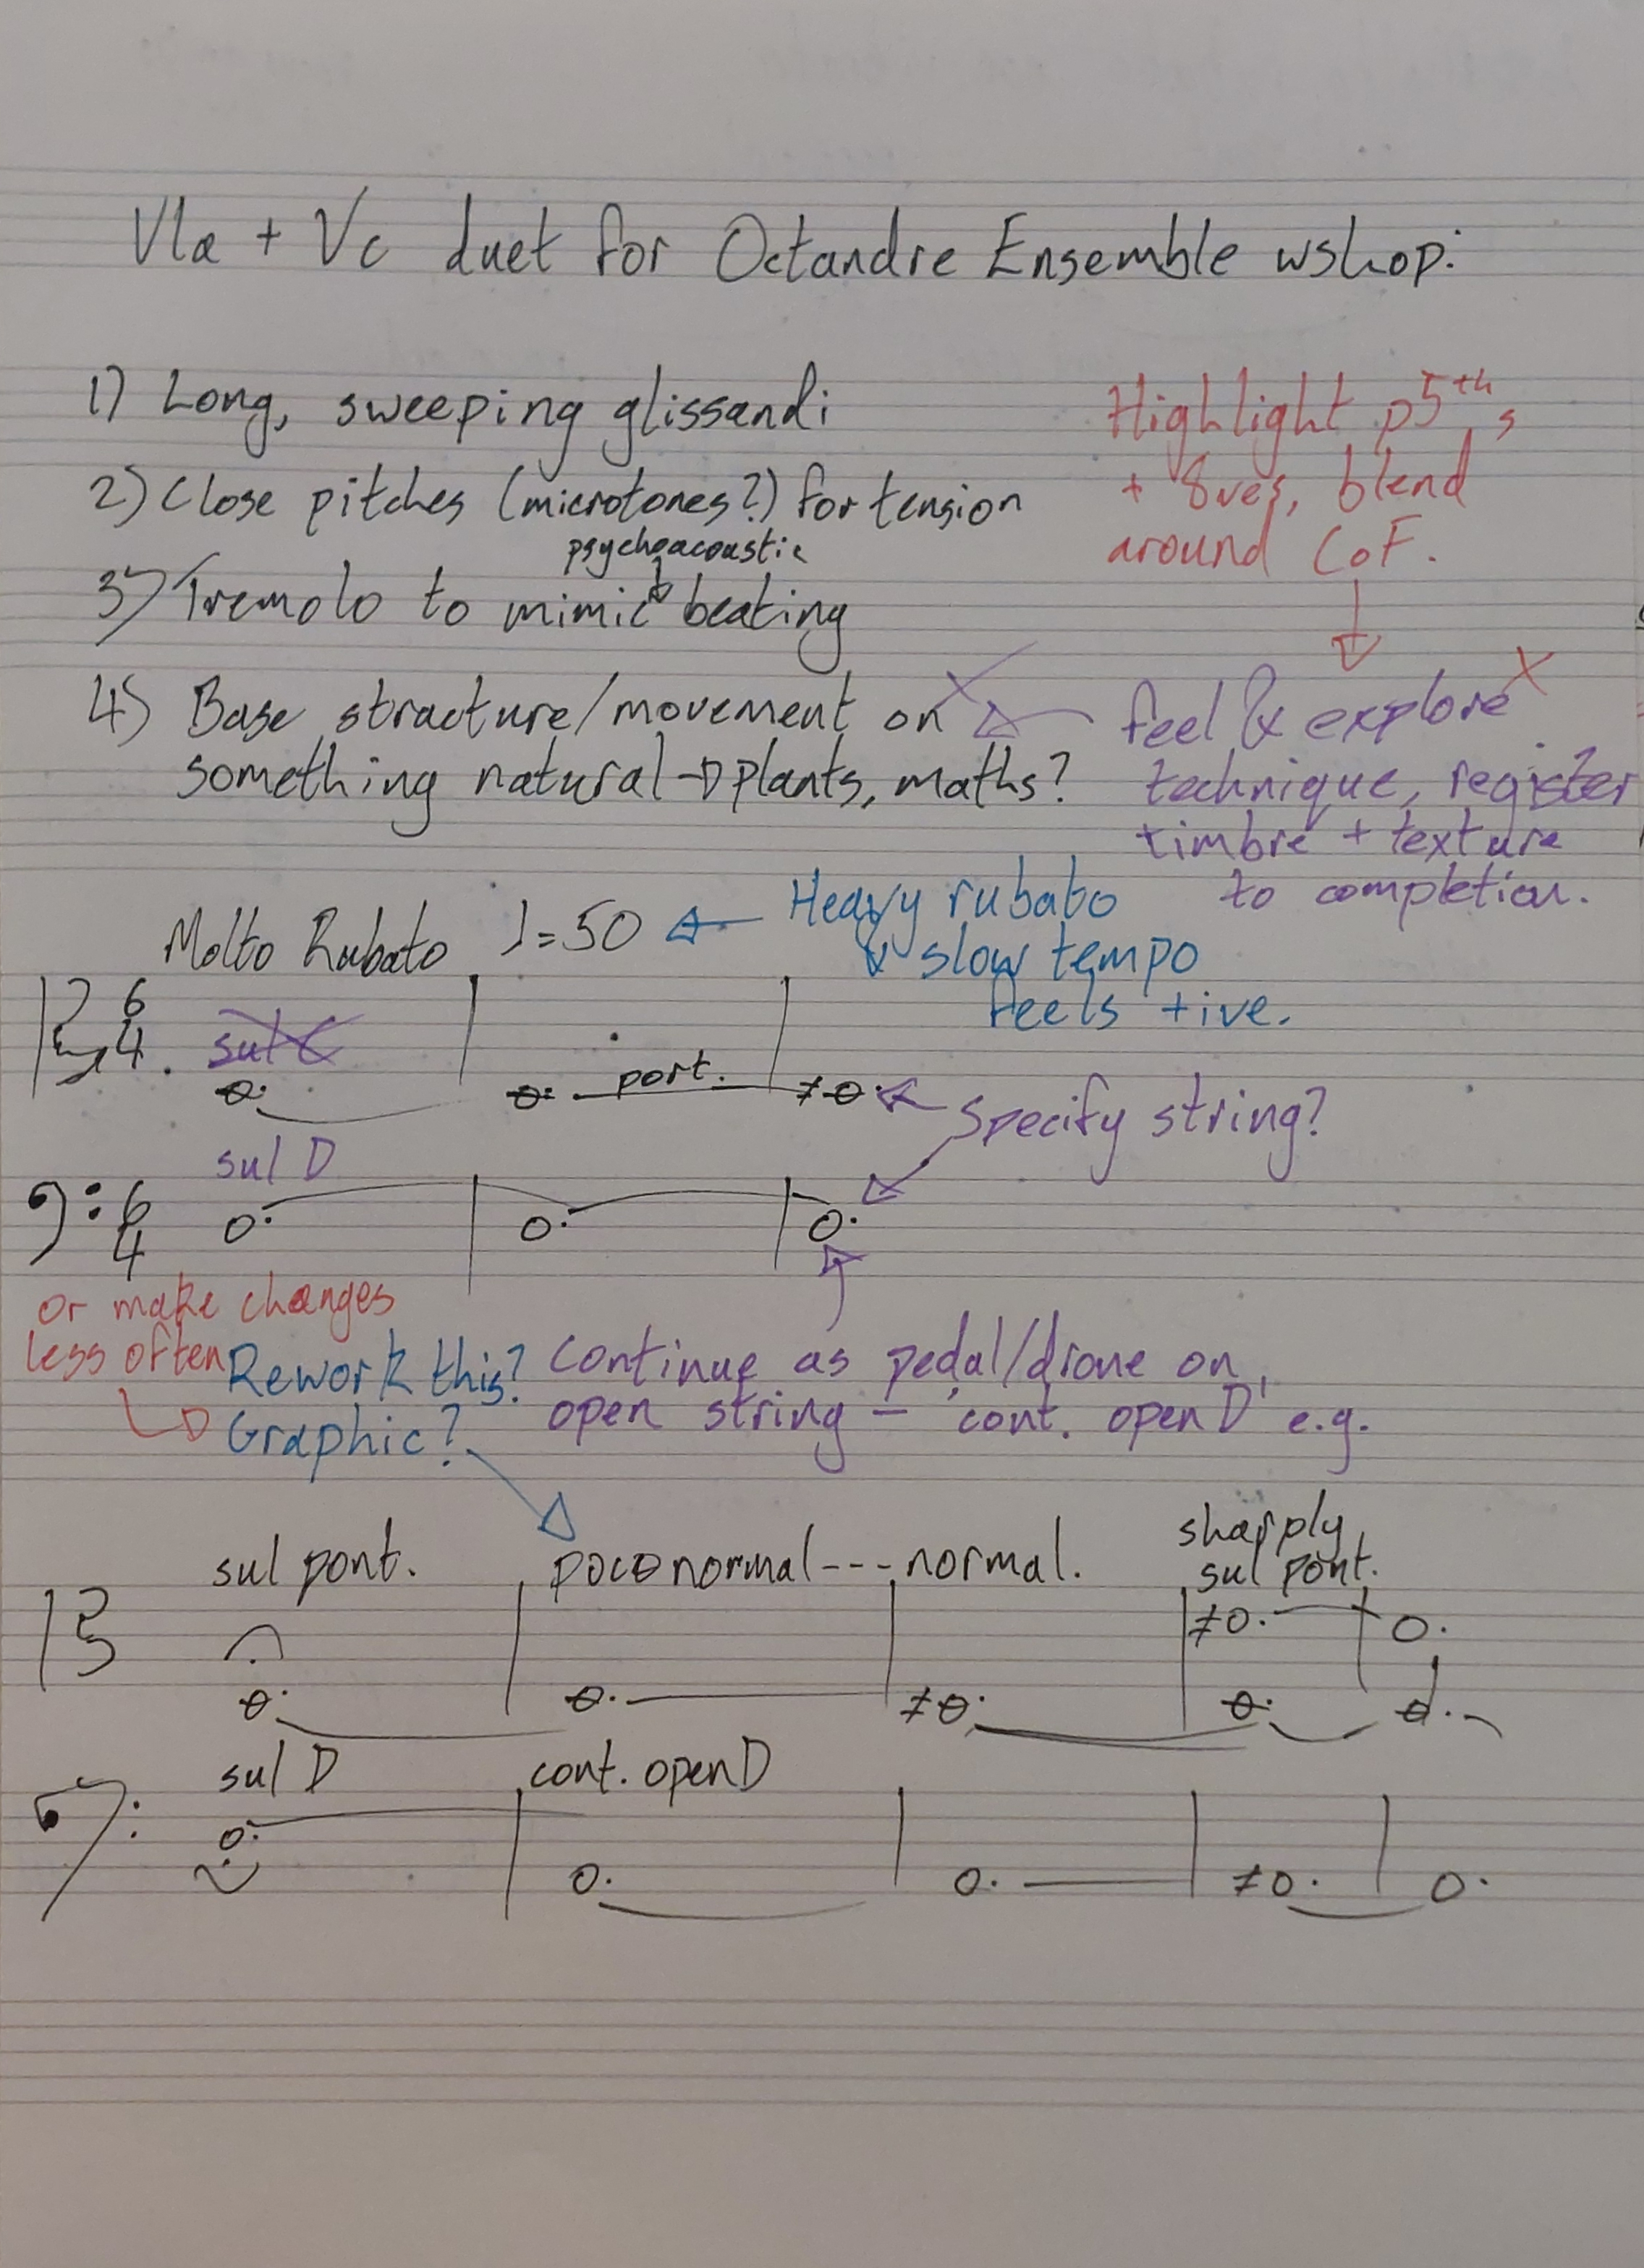 Vla + Vc duet for Octandre Ensemble wshop:
1) Long, sweeping glissandi
2) Close pitches (microtones?) for tension
psychoacoustic
3) Tremolo to mimic beating
4) Base structure/movement on
something natural → plants, maths?
Highlight p5ths
+ 8ves, blend
around CoF.
feel & explore
technique, register
timbre + texture
to completion.
Molto Rubato ♩=50
Heavy rubato
slow tempo
feels +ive.
6
4
sul C
port.
Specify string?
sul D
6
4
or make changes
less often
Rework this?
Graphic?
Continue as pedal/drone on
open string - 'cont. open D' e.g.
sul pont. poco normal --- normal. sharply
sul pont.
sul D cont. open D